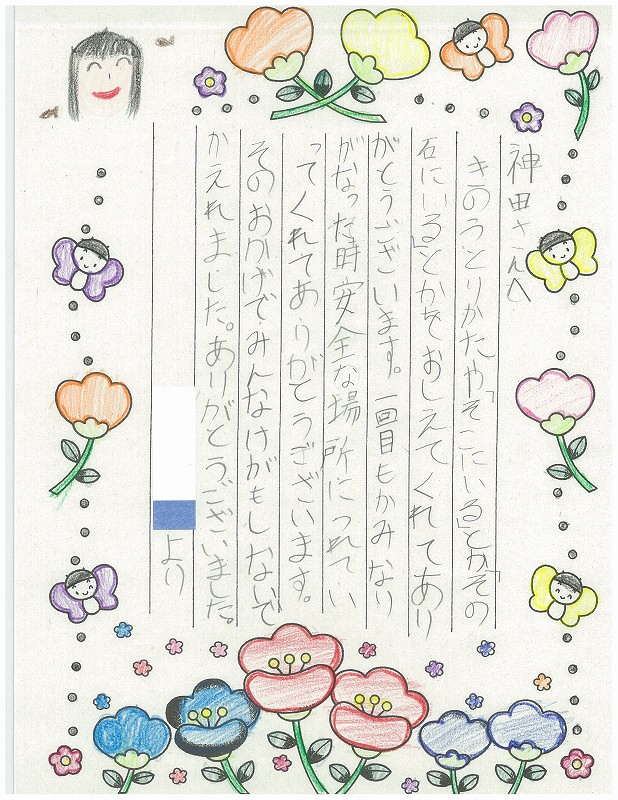 神田さんへ
きのうとりかたや「そこにいる」とか「その
石にいる」とかをおしえてくれてあり
がとうございます。一回目もかみなり
がなった時安全な場所につれてい
ってくれてありがとうございます。
そのおかげでみんなけがもしないで
かえれました。ありがとうございました。
より